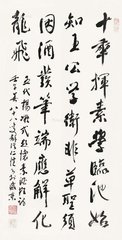 十年揮素學臨池始
知王公學衛非草聖須
因酒發筆端應解化
龍飛
五代楊凝式題懷素